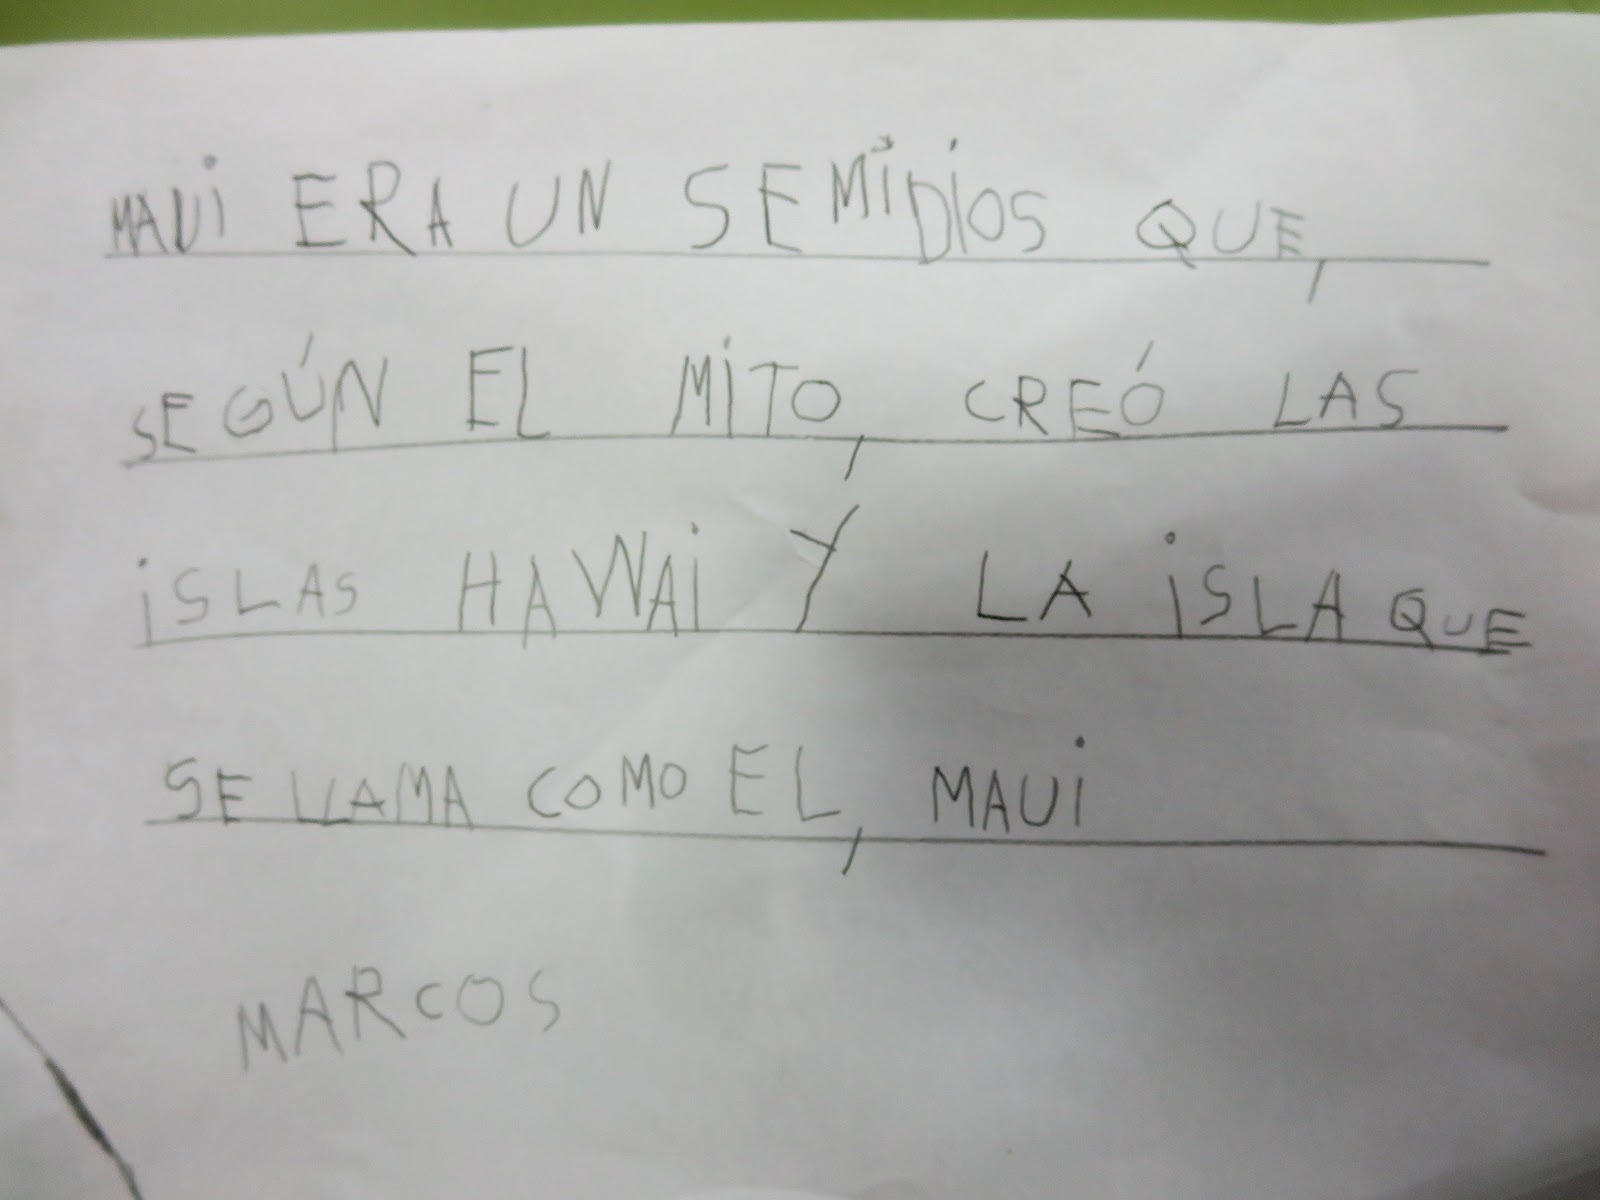 MAUi ERA UN SEMiDiOS QUE,
SEGÚN EL MiTO, CREÓ LAS
iSLAS HAWAi Y LA iSLA QUE
SE LLAMA COMO EL, MAUi
MARCOS